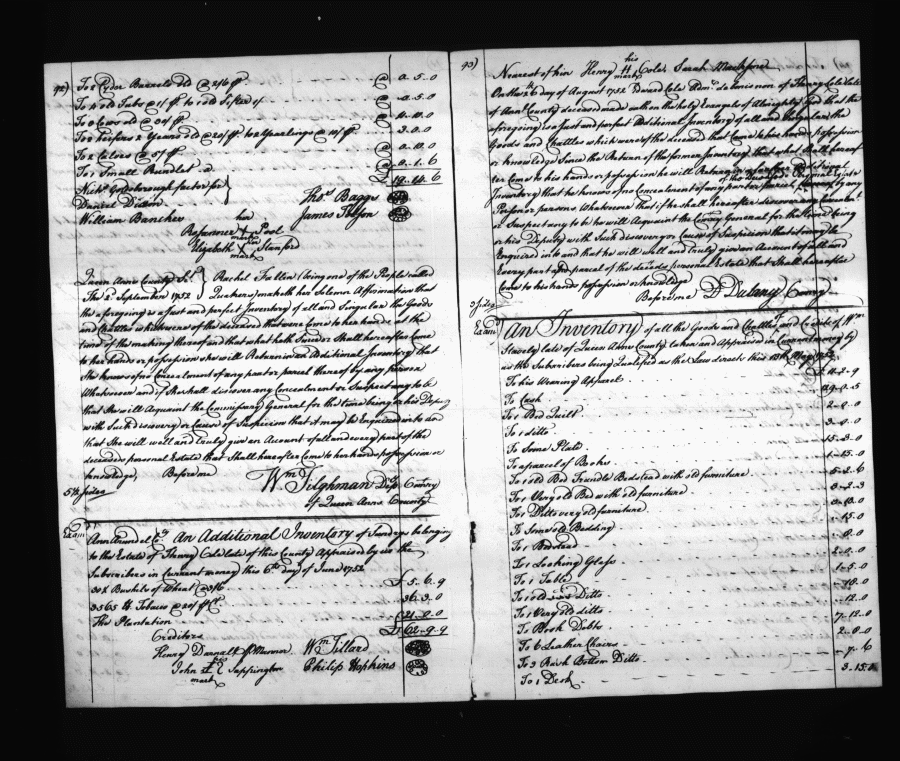 42)
To 2 Cyder Barrels old @ 2/6 p @ 0..5..0
To 4 old Tubs @ 1/ p. to 1 old Sifter 1/ @ 0..5..0
To 2 Calves @ 5/ p @ 0..10..0
To 1 Small Rundlet @ 0..1..6
Nichs. Goldsborough factor for
Daniel Dixon
William Banckes
Thos. Baggs
James Tolson
her
Rosanner X Pool
mark
Elizabeth X Stanford
mark
Queen Anns County Sc. Rachel Fallin (being one of the People called
The 2d. September 1752 Quakers) maketh her Solemn Affirmation that
the aforegoing is a just and perfect Inventory of all and Singular the Goods
and Chattles which were of the deceased that were come to her hands at the
time of the making thereof and that what hath Since or Shall hereafter Come
to her hands or possession She will Return in and Additional Inventory that
She knows of no Concealment of any part or parcel thereof by any person
Whatsoever and if She shall discover any Concealment or Suspect any to be
that She will Acquaint the Commissary General for the time being or his Deputy
with Such discovery or Cause of Suspicion that it may be Enquired into and
that She will well and truly give an Account of all and every part of the
deceaseds personal Estate that Shall hereafter come to her hands possession or
knowledge, Before me
Wm. Tilghman Depy. Comry
of Queen Anns County
5½ sides
Exam'd
Ann Arundel Co. An Additional Inventory of Sundrys belonging
to the Estate of Henry Cole late of this County Appraised by us the
Subscribers in Current money this 6th. day of June 1752
30¾ Bushels of Wheat @ 3/6 £ 5..6..9
3565 lb Tobacco @ 20/ p C. 36..3..0
The Plantation 21..0..0
£ 62..9..9
Creditors
Henry Darnall
Wm. Tillard
John Sappington
mark
Philip Hopkins
43)
Nearest of kin Henry H Cole, Sarah
his
mark
On the 26 day of August 1752 Edward Cole Adm. de bonis non of Henry Cole late
of Ann County deceased made oath on the holy Evangels of Almighty God that the
aforegoing is a Just and perfect Additional Inventory of all and Singular the
Goods and Chattles which were of the deceased that come to his hands possession
or knowledge Since the Return of the former Inventory, that what Shall hereaf
ter Come to his hands or possession he will Return in Additional
Inventory that he knows of no Concealment of any part or parcel by any
of the deceds. Personal Estate
Person or persons Whatsoever that if he shall hereafter discover any Concealmt.
or Suspect any to be he will Acquaint the Comry General for the time being
or his Deputy with Such discovery or Cause of Suspicion that it may be
Enquired into and that he will well and truly give an Account of all and
Every part and parcel of the deceds. personal Estate that Shall hereafter
Come to his hands possession or knowledge
Before me D Dulany Comry
3 sides
Exam'd
An Inventory of all the Goods and Chattles and Credits of Wm.
late of Queen Anns County taken and Appraised in Current money by
us the Subscribers being Qualified as the Law directs this May 1752
To his Wearing Apparel
To Cash
To 1 Bed Quilt 2..0..0
To 1 ditto 3..0..0
To Some Plate 15..3..0
To a parcel of Books 1..15..0
To 1 old Bed Trundle Bedstead with old furniture 5..2..6
To 1 Very old Bed with old furniture 3..2..3
To 1 Ditto very old furniture
To Some old Bedding ..15..0
To 1 Bedstead
To 1 Looking Glass 2..0..0
To 1 Table 1..5..0
To 1 old Ditto ..10..0
To 1 Very old ditto ..12..0
To Book Debts 7..12..0
To 6 Leather Chairs 2..0..0
To 3 Rush Bottom Ditto ..7..6
To 1 Desk 3..15..0